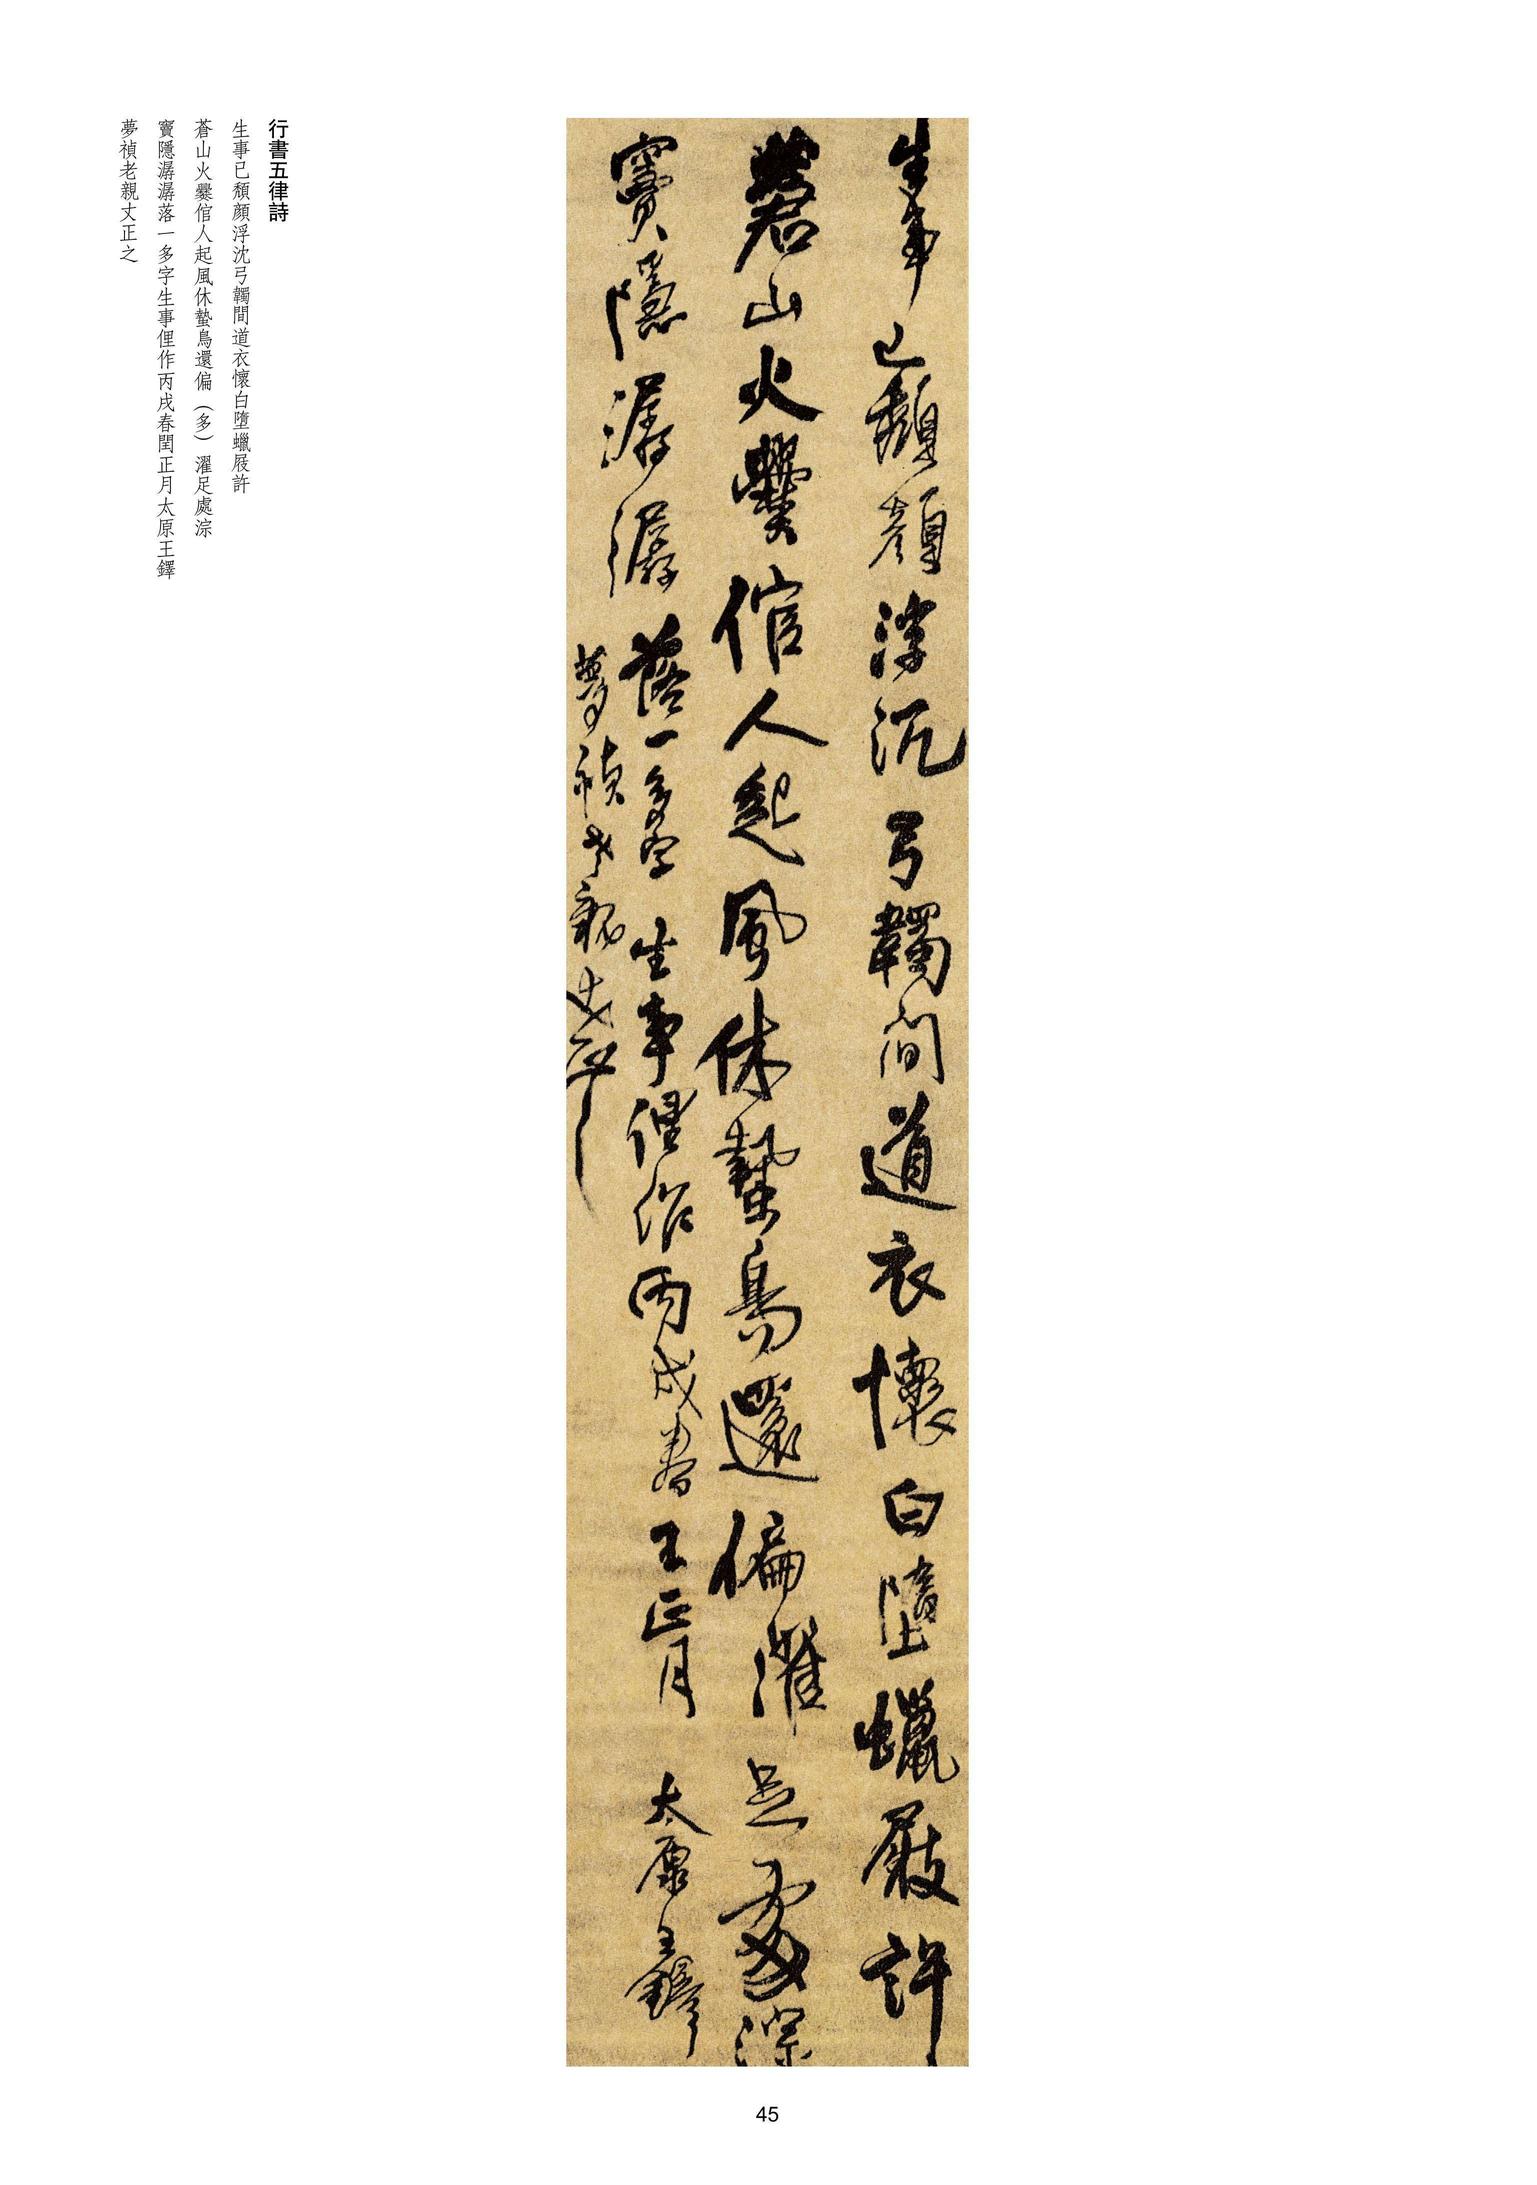 行書五律詩
生事已頹顏浮沈弓韣間道衣懷白墮蠟屐許
蒼山火爨倌人起風休蟄鳥還偏（多）濯足處淙
竇隱潺潺落一多字生事俚作丙戌春閏正月太原王鐸
夢禎老親丈正之
生事已頹顏浮沉弓韣間道衣懷白墮蠟屐許
蒼山火爨倌人起風休蟄鳥還偏濯足處淙
竇隱潺潺落一多字生事俚作丙戌春王正月太原王鐸
夢禎老親丈正之
45